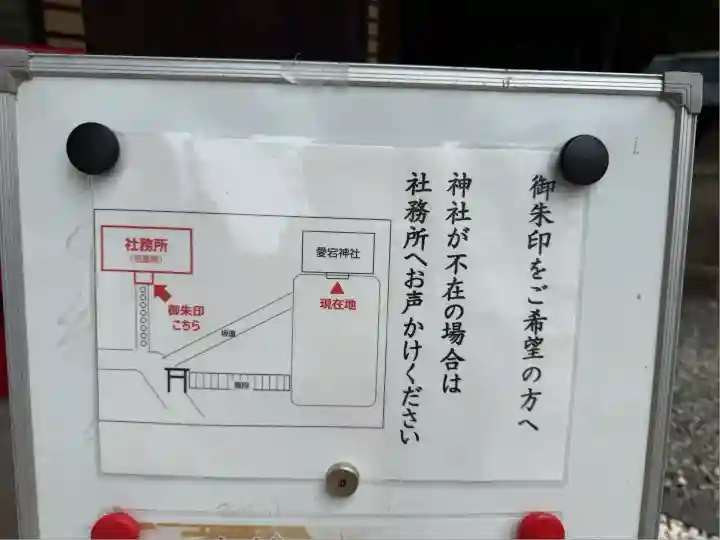 御朱印をご希望の方へ
神社が不在の場合は
社務所へお声かけください
社務所
愛宕神社
現在地
御朱印
こちら
坂道
階段